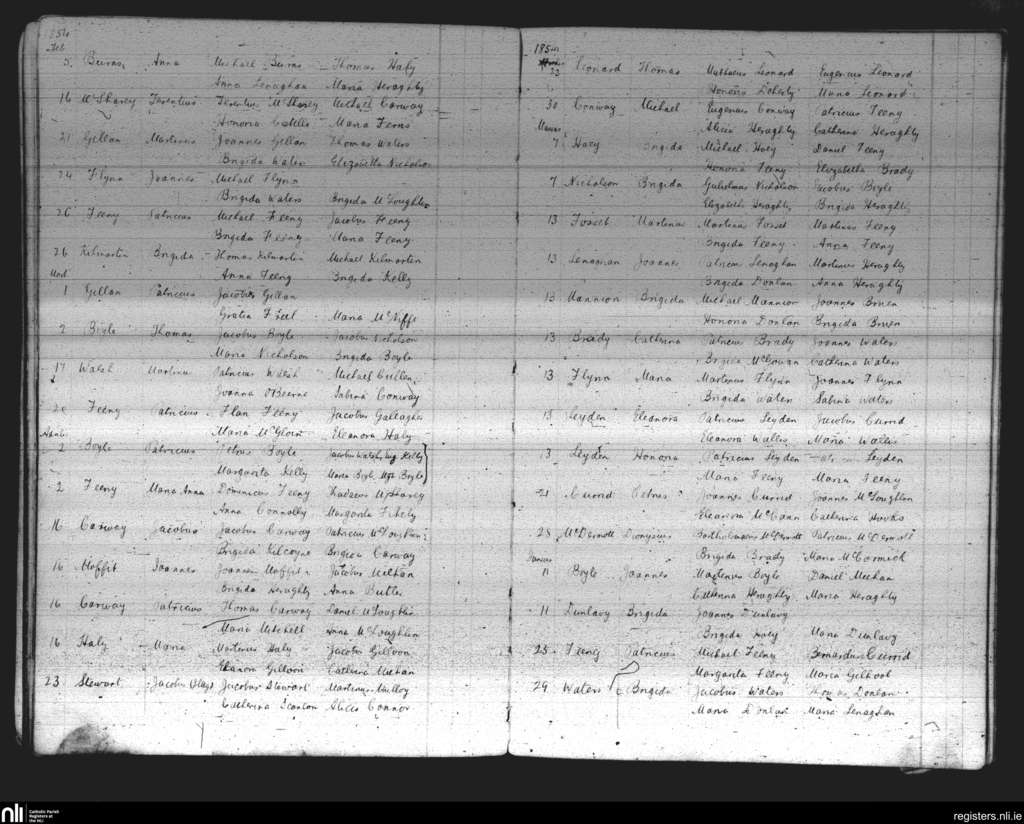 1856
Feb
5 Beirns Anna Michael Beirns Thomas Haly
Anna Lenaghan Maria Heraghty
16 McSharey Terentius Terentius McSharey Michael Carway
Honoria Costello Maria Ferns
21 Gillan Martinus Joannes Gillan Thomas Waters
Brigida Waters Elizabetha Nicholson
24 Flynn Joannes Michael Flynn
Brigida Waters Brigida McLoughlin
26 Feeny Patricius Michael Feeny Jacobus Feeny
Brigida Feeny Maria Feeny
26 Kilmartin Brigida Thomas Kilmartin Michael Kilmartin
Anna Feeny Brigida Kelly
1 Gillan Patricius Jacobus Gillan
Gratia Feel Maria McNiffe
2 Boyle Thomas Jacobus Boyle Jacobus Nicholson
Maria Nicholson Brigida Boyle
17 Walsh Martinus Patricius Walsh Michael Cullen
Joanna OBeirne Sabina Conway
Feeny Patricius Feeny Jacobus Gallagher
Maria McGloin Eleanora Haly
2 Boyle Patricius Petrus Boyle Jacobus Walsh, Kelly
Margarita Kelly Maria Boyle, Boyle
2 Feeny Maria Anna Dominicus Feeny Thadeus McSharey
Anna Connolly Margarita Fihely
16 Carway Jacobus Jacobus Carway Patricius McLoughlin
Brigida Kilcoyne Brigida Carway
16 Moffit Joannes Joannes Moffit Jacobus Meehan
Brigida Heraghty Anna Butler
16 Carway Patricius Thomas Carway Daniel McLoughlin
Maria Mitchell Anna McLoughlin
16 Haly Maria Martinus Haly Jacobus Gilloon
Eleanora Gilloon Catherina Meehan
23 Stewart Jacobus Jacobus Stewart Martinus Mulloy
Catherina Scanlon Alicia Connor
185
23 Leonard Thomas Mathaeus Leonard Eugenius Leonard
Honora Doherty Maria Leonard
30 Conway Michael Eugenius Conway Patricius Feeny
Alicia Heraghty Catherina Heraghty
7 Haey Brigida Michael Haey Daniel Feeny
Honoria Feeny Elizabetha Brady
7 Nicholson Brigida Gulielmus Nicholson Jacobus Boyle
Elizabeth Heraghty Brigida Heraghty
13 Fosset Martinus Martinus Fosset Martinus Feeny
Brigida Feeny Anna Feeny
13 Lenaghan Joannes Patricius Lenaghan Martinus Heraghty
Brigida Donlan Anna Heraghty
13 Mannion Brigida Michael Mannion Joannes Brien
Honoria Donlan Brigida Brien
13 Brady Catherina Patricius Brady Joannes Waters
Brigida McGowan Catherina Waters
13 Flynn Maria Martinus Flynn Joannes Flynn
Brigida Waters Sabina Waters
13 Leyden Eleanora Patricius Leyden Jacobus Currid
Eleanora Wallis Maria Wallis
13 Leyden Honora Patricius Leyden Leyden
Maria Feeny Maria Feeny
21 Currid Petrus Joannes Currid Joannes McLoughlin
Eleanora McCann Catherina Hawks
25 McDermott Dionysius Bartholomaeus McDermott Patricius McDermott
Brigida Brady Maria McCormick
11 Boyle Joannes Martinus Boyle Daniel Meehan
Catherina Heraghty Maria Heraghty
11 Dunlavy Brigida Joannes Dunlavy
Brigida Haly Maria Dunlavy
25 Feeny Patricius Michael Feeny Bernardus Currid
Margarita Feeny Maria Gilhool
29 Waters Brigida Jacobus Waters Thomas Donlan
Maria Donlan Maria Lenaghan
nli Catholic Parish
Registers at
the NLI
registers.nli.ie